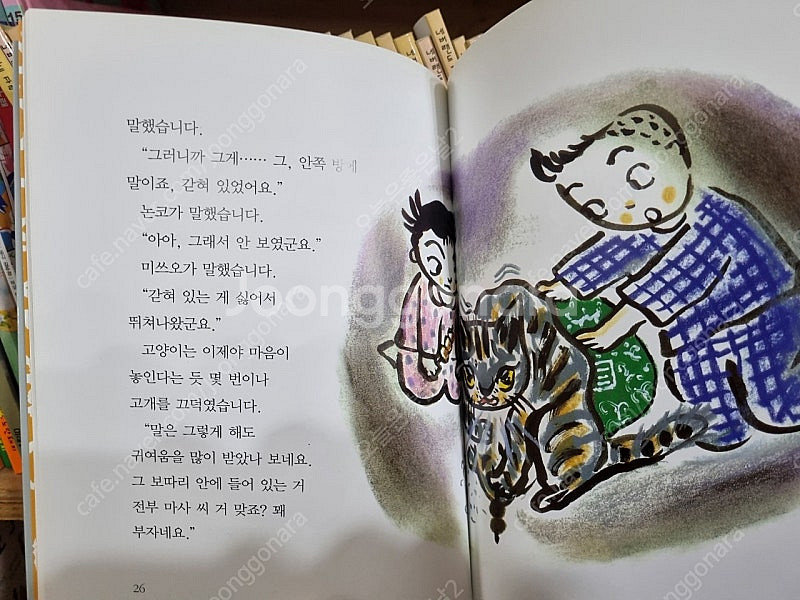 말했습니다.
“그러니까 그게…… 그, 안쪽 방에
말이죠, 갇혀 있었어요.”
논코가 말했습니다.
“아아, 그래서 안 보였군요.”
미쓰오가 말했습니다.
“갇혀 있는 게 싫어서
뛰쳐나왔군요.”
고양이는 이제야 마음이
놓인다는 듯 몇 번이나
고개를 끄덕였습니다.
“말은 그렇게 해도
귀여움을 많이 받았나 보네요.
그 보따리 안에 들어 있는 거
전부 마사 씨 거 맞죠? 꽤
부자네요.”
26
Joonggonara